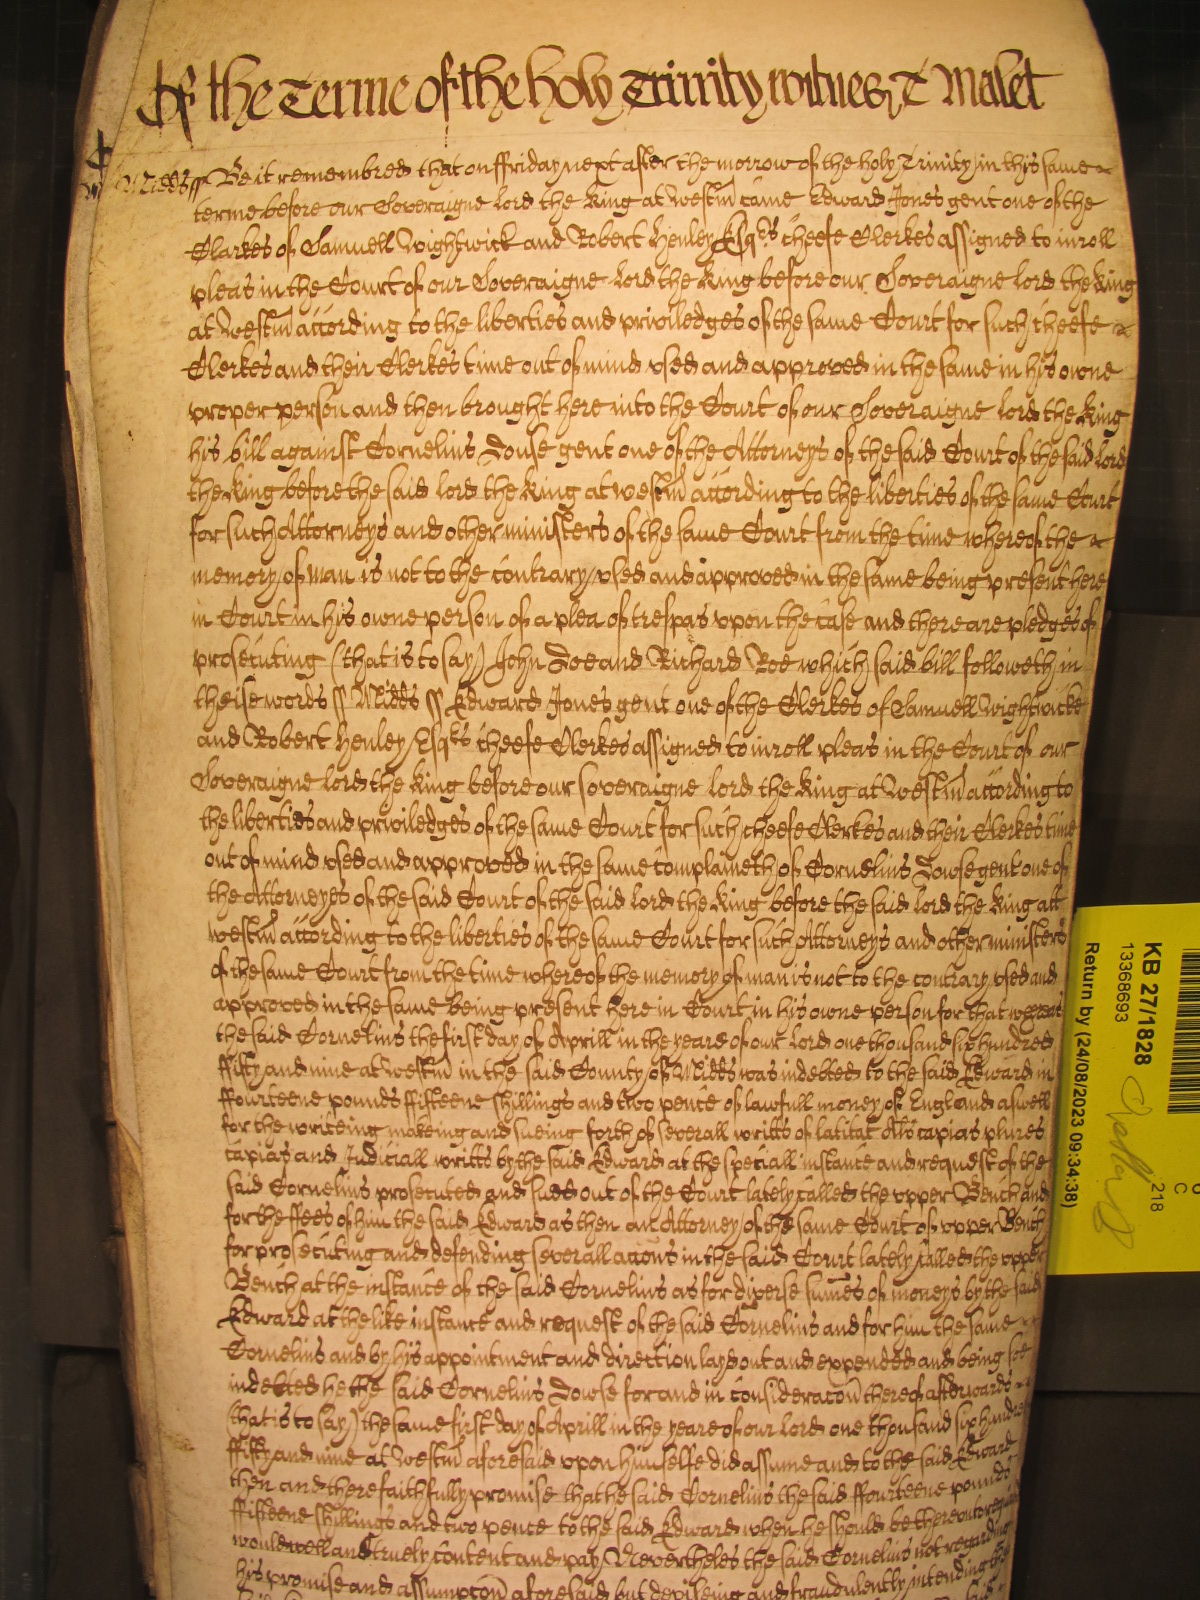 Of the Terme of the holy Trinity witnes T Malet
Midds ss Be it remembred that on ffriday next after the morrow of the holy Trinity in this same
terme before our Soveraigne lord the King at Westm came Edward Jones gent one of the
Clarkes of Samuell Wightwick and Robert Henley Esqrs cheefe Clerkes assigned to inroll
pleas in the Court of our Soveraigne lord the King before our Soveraigne lord the King
at Westm according to the liberties and priviledges of the same Court for such cheefe
Clerkes and their Clerkes time out of mind used and approved in the same in his owne
proper person and then brought here into the Court of our Soveraigne lord the King
his bill against Cornelius Douse gent one of the Attorneys of the said Court of the said lord
the King before the said lord the King at westm according to the liberties of the same Court
for such Attorneys and other ministers of the same Court from the time whereof the
memory of man is not to the contrary used and approved in the same being present here
in Court in his owne person of a plea of trespas upon the case and there are pledges of
prosecuting (that is to say) John Doe and Richard Roe which said bill followeth in
theise words ss Midds ss Edward Jones gent one of the Clerkes of Samuell Wightwicke
and Robert Henley Esqrs cheefe Clerkes assigned to inroll pleas in the Court of our
Soveraigne lord the King before our soveraigne lord the King at Westm according to
the liberties and priviledges of the same Court for such cheefe Clerkes and their Clerkes time
out of mind used and approved in the same complaineth of Cornelius Dowse gent one of
the Attorneyes of the said Court of the said lord the King before the said lord the King att
westm according to the liberties of the same Court for such Attorneys and other ministers
of the same Court from the time whereof the memory of man is not to the contrary used and
approved in the same being present here in Court in his owne person for that whereas
the said Cornelius the first day of Aprill in the yeare of our lord one thousand six hundred
ffifty and nine at Westm in the said County of Midds was indebted to the said Edward in
ffourteene pounds ffifteene shillings and two pence of lawfull money of England aswell
for the writeing makeing and sueing forth of severall writts of latitat Als capias plures
capias and Judiciall writts by the said Edward at the speciall instance and request of the
said Cornelius prosecuted and sued out of the Court lately called the upper Bench and
for the ffees of him the said Edward as then an Attorney of the same Court of upper Bench
for prosecuting and defending severall accions in the said Court lately called the upper
Bench at the instance of the said Cornelius as for diverse sumes of moneys by the said
Edward at the like instance and request of the said Cornelius and for him the same
Cornelius and by his appointment and direction layd out and expended and being soe
indebted he the said Cornelius Dowse for and in consideracon thereof afterwards
(that is to say) the same first day of Aprill in the yeare of our lord one thousand six hundred
ffifty and nine at Westm aforesaid upon himselfe did assume and to the said Edward
then and there faithfully promise that he said Cornelius the said ffourteene pounds
ffifteene shillings and two pence to the said Edward when he should be thereunto required
would well and truely content and pay Nevertheles the said Cornelius not regarding
his promise and assumpcon aforesaid but deviseing and fraudulently intending the
KB 27/1828
13368693
Return by (24/08/2023 09:34:38)
218
C